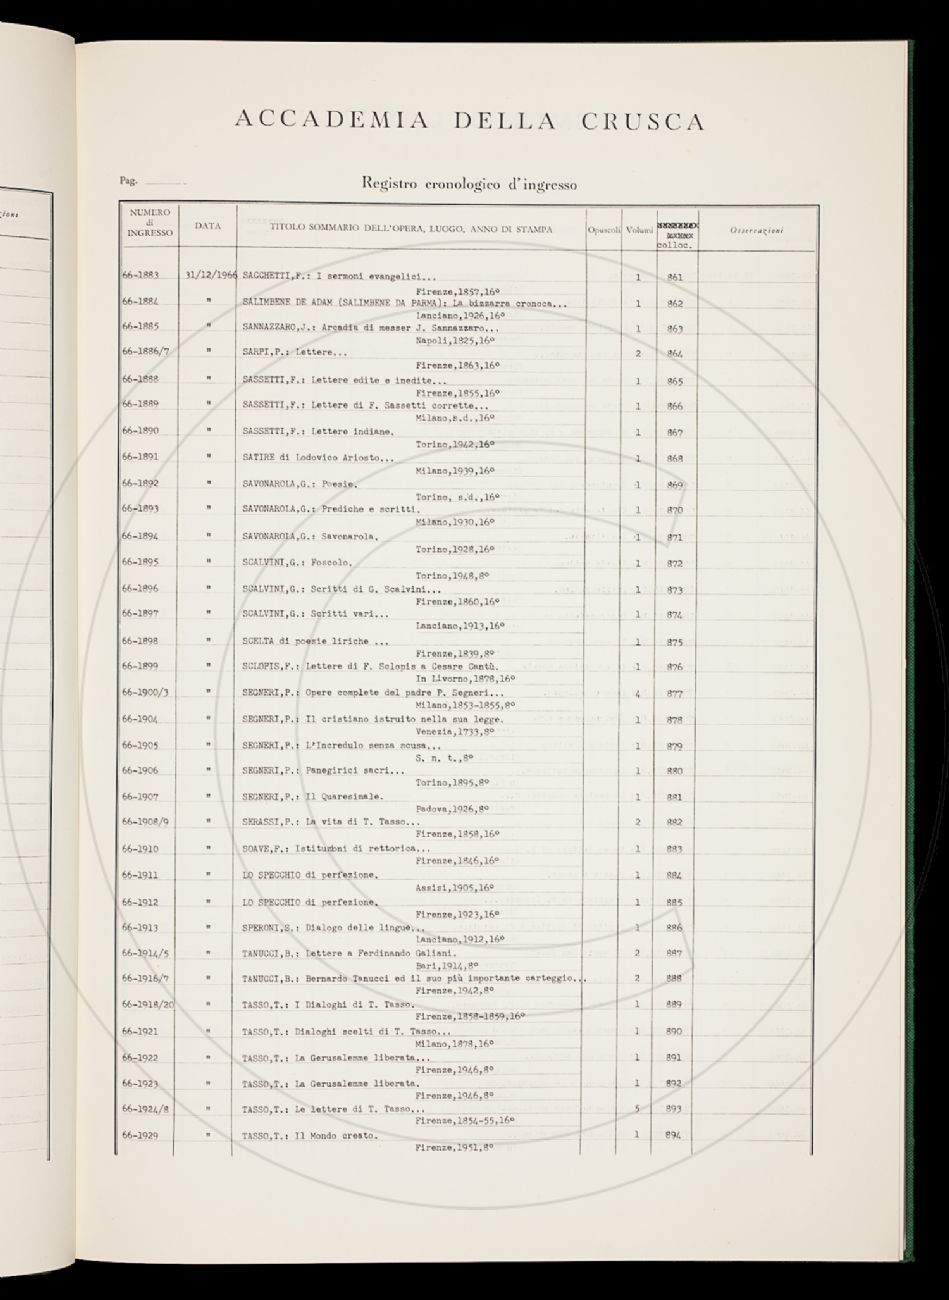 ACCADEMIA DELLA CRUSCA
Pag.
Registro cronologico d'ingresso
NUMERO di INGRESSO DATA TITOLO SOMMARIO DELL'OPERA, LUOGO, ANNO DI STAMPA Opuscoli Volumi colloc. Osservazioni
66-1883 31/12/1966 SACCHETTI,F.: I sermoni evangelici... 1 861
Firenze,1857,16º
66-1884 " SALIMBENE DE ADAM (SALIMBENE DA PARMA): La bizzarra cronoca... 1 862
Lanciano,1926,16º
66-1885 " SANNAZZARO,J.: Arcadia di messer J. Sannazzaro... 1 863
Napoli,1825,16º
66-1886/7 " SARPI,P.: Lettere... 2 864
Firenze,1863,16º
66-1888 " SASSETTI,F.: Lettere edite e inedite... 1 865
Firenze,1855,16º
66-1889 " SASSETTI,F.: Lettere di F. Sassetti corrette... 1 866
Milano,s.d.,16º
66-1890 " SASSETTI,F.: Lettere indiane. 1 867
Torino,1942,16º
66-1891 " SATIRE di Lodovico Ariosto... 1 868
Milano,1939,16º
66-1892 " SAVONAROLA,G.: Poesie. 1 869
Torino, s.d.,16º
66-1893 " SAVONAROLA,G.: Prediche e scritti. 1 870
Milano,1930,16º
66-1894 " SAVONAROLA,G.: Savonarola. 1 871
Torino,1928,16º
66-1895 " SCALVINI,G.: Foscolo. 1 872
Torino,1948,8º
66-1896 " SCALVINI,G.: Scritti di G. Scalvini... 1 873
Firenze,1860,16º
66-1897 " SCALVINI,G.: Scritti vari... 1 874
Lanciano,1913,16º
66-1898 " SCELTA di poesie liriche ... 1 875
Firenze,1839,8º
66-1899 " SCLOPIS,F.: Lettere di F. Sclopis a Cesare Cantù. 1 876
In Livorno,1878,16º
66-1900/3 " SEGNERI,P.: Opere complete del padre P. Segneri... 4 877
Milano,1853-1855,8º
66-1904 " SEGNERI,P.: Il cristiano istruito nella sua legge. 1 878
Venezia,1733,8º
66-1905 " SEGNERI,P.: L'Incredulo senza scusa... 1 879
S. n. t.,8º
66-1906 " SEGNERI,P.: Panegirici sacri... 1 880
Torino,1895,8º
66-1907 " SEGNERI,P.: Il Quaresimale. 1 881
Padova,1926,8º
66-1908/9 " SERASSI,P.: La vita di T. Tasso... 2 882
Firenze,1858,16º
66-1910 " SOAVE,F.: Istituzoni di rettorica... 1 883
Firenze,1846,16º
66-1911 " LO SPECCHIO di perfezione. 1 884
Assisi,1905,16º
66-1912 " LO SPECCHIO di perfezione. 1 885
Firenze,1923,16º
66-1913 " SPERONI,S.: Dialogo delle lingue... 1 886
Lanciano,1912,16º
66-1914/5 " TANUCCI,B.: Lettere a Ferdinando Galiani. 2 887
Bari,1914,8º
66-1916/7 " TANUCCI,B.: Bernardo Tanucci ed il suo più importante carteggio... 2 888
Firenze,1942,8º
66-1918/20 " TASSO,T.: I Dialoghi di T. Tasso. 1 889
Firenze,1858-1859,16º
66-1921 " TASSO,T.: Dialoghi scelti di T. Tasso... 1 890
Milano,1878,16º
66-1922 " TASSO,T.: La Gerusalemme liberata... 1 891
Firenze,1946,8º
66-1923 " TASSO,T.: La Gerusalemme liberata. 1 892
Firenze,1946,8º
66-1924/8 " TASSO,T.: Le lettere di T. Tasso... 5 893
Firenze,1854-55,16º
66-1929 " TASSO,T.: Il Mondo creato. 1 894
Firenze,1951,8º